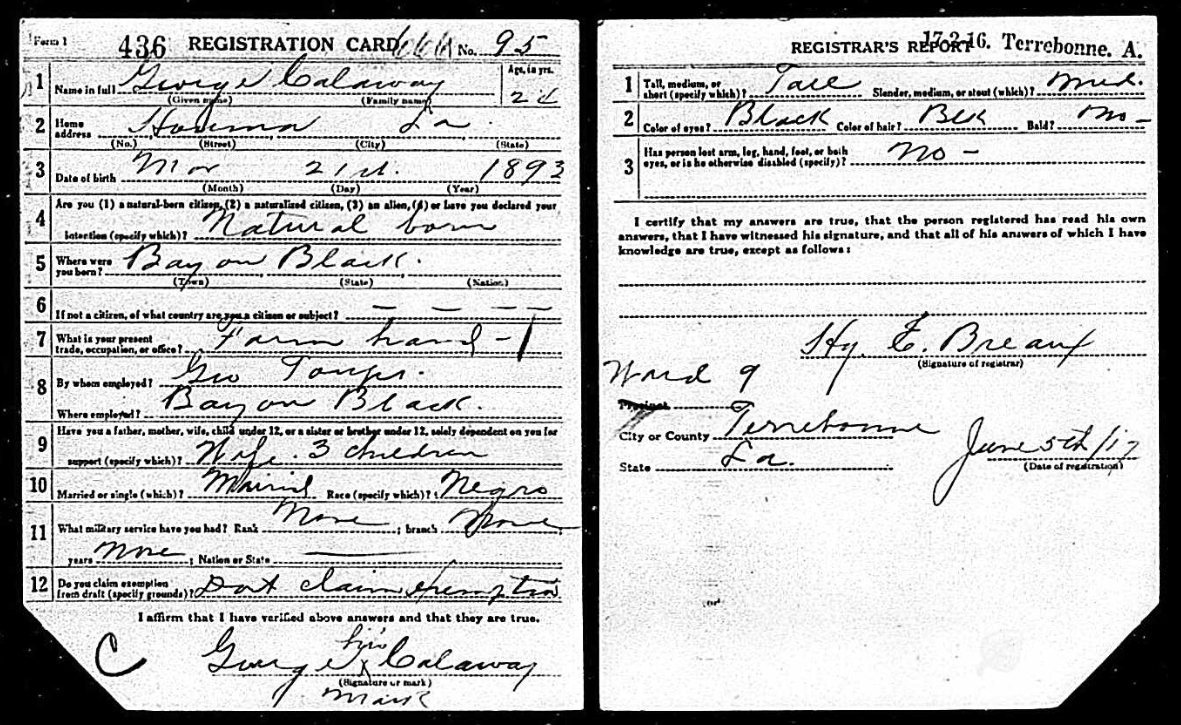 Form 1 436 REGISTRATION CARD No. 95
1 Name in full George Calaway Age, in yrs.
(Given name) (Family name)
2 Home address Houma La.
(No.) (Street) (City) (State)
3 Date of birth Mar 21st. 1893
(Month) (Day) (Year)
4 Are you (1) a natural-born citizen, (2) a naturalized citizen, (3) an alien, (4) or have you declared your
intention (specify which)? Natural born
5 Where were you born? Bayou Black.
(Town) (State) (Nation)
6 If not a citizen, of what country are you a citizen or subject? — — — —
7 What is your present trade, occupation, or office? Farm hand -
8 By whom employed? Geo Toups.
Where employed? Bayou Black.
9 Have you a father, mother, wife, child under 12, or a sister or brother under 12, solely dependent on you for
support (specify which)? Wife. 3 children
10 Married or single (which)? Married Race (specify which)? Negro
11 What military service have you had? Rank None ; branch None
years None ; Nation or State —
12 Do you claim exemption from draft (specify grounds)? Dont claim exemption
I affirm that I have verified above answers and that they are true.
C George his x Calaway
(Signature or mark)
mark
REGISTRAR'S REPORT 17-2-16. Terrebonne. A.
1 Tall, medium, or short (specify which)? Tall Slender, medium, or stout (which)? Med.
2 Color of eyes? Black Color of hair? Blk Bald? No -
3 Has person lost arm, leg, hand, foot, or both eyes, or is he otherwise disabled (specify)? No -
I certify that my answers are true, that the person registered has read his own
answers, that I have witnessed his signature, and that all of his answers of which I have
knowledge are true, except as follows:
Hy. E. Breaux
(Signature of registrar)
Ward 9
Precinct
City or County Terrebonne
State La.
June 5th/17
(Date of registration)